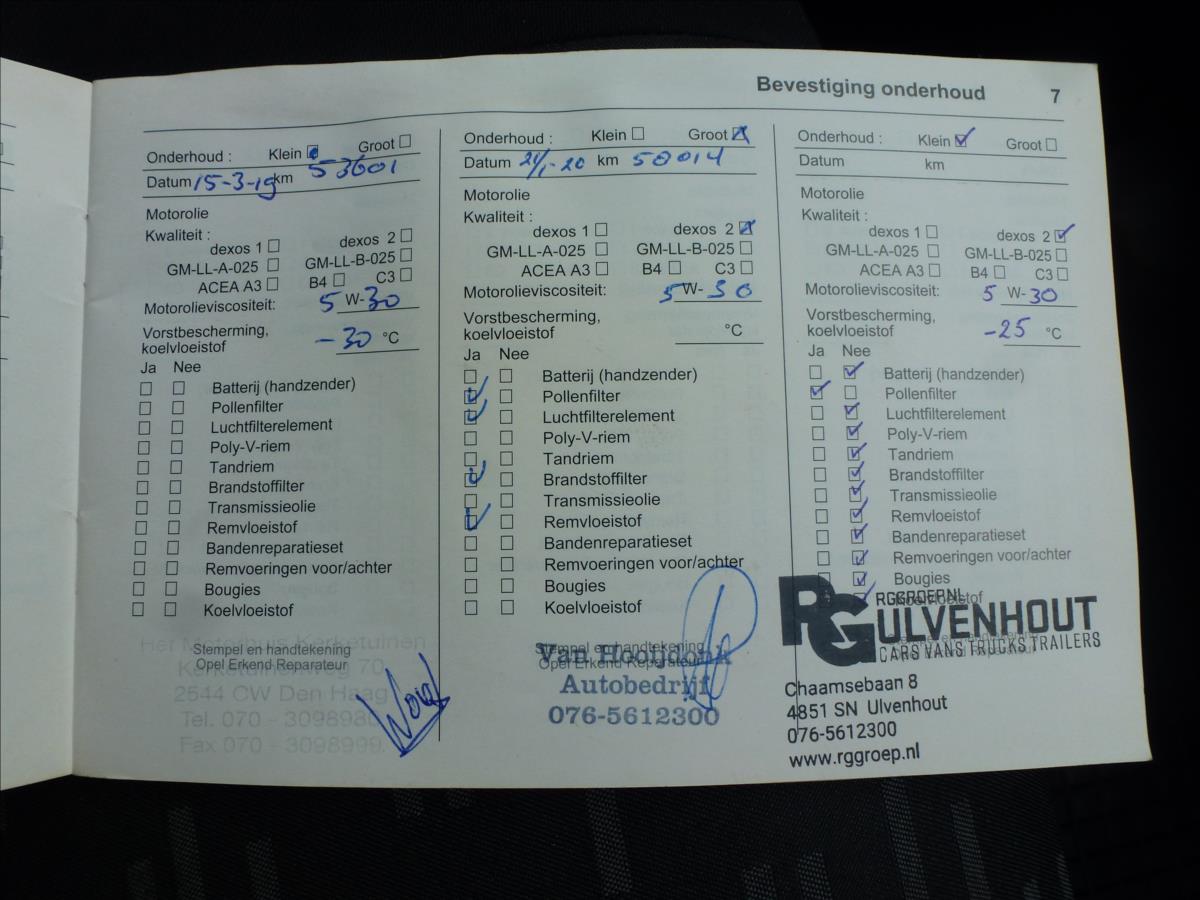 Bevestiging onderhoud 7
Onderhoud : Klein Groot
Datum 15-3-19 km 53601
Motorolie
Kwaliteit :
dexos 1 dexos 2
GM-LL-A-025 GM-LL-B-025
ACEA A3 B4 C3
Motorolieviscositeit: 5 W-30
Vorstbescherming,
koelvloeistof -30 °C
Ja Nee
Batterij (handzender)
Pollenfilter
Luchtfilterelement
Poly-V-riem
Tandriem
Brandstoffilter
Transmissieolie
Remvloeistof
Bandenreparatieset
Remvoeringen voor/achter
Bougies
Koelvloeistof
Het Motorhuis Kerketuinen
Stempel en handtekening
Opel Erkend Reparateur
Kerketuinenweg 70
2544 CW Den Haag
Tel. 070 - 3098980
Fax 070 - 3098999
Onderhoud : Klein Groot
Datum 21/1-20 km 58014
Motorolie
Kwaliteit :
dexos 1 dexos 2
GM-LL-A-025 GM-LL-B-025
ACEA A3 B4 C3
Motorolieviscositeit: 5 W-30
Vorstbescherming,
koelvloeistof °C
Ja Nee
Batterij (handzender)
Pollenfilter
Luchtfilterelement
Poly-V-riem
Tandriem
Brandstoffilter
Transmissieolie
Remvloeistof
Bandenreparatieset
Remvoeringen voor/achter
Bougies
Koelvloeistof
Stempel en handtekening
Van Hooijdonk
Opel Erkend Reparateur
Autobedrijf
076-5612300
Onderhoud : Klein Groot
Datum km
Motorolie
Kwaliteit :
dexos 1 dexos 2
GM-LL-A-025 GM-LL-B-025
ACEA A3 B4 C3
Motorolieviscositeit: 5 W-30
Vorstbescherming,
koelvloeistof -25 °C
Ja Nee
Batterij (handzender)
Pollenfilter
Luchtfilterelement
Poly-V-riem
Tandriem
Brandstoffilter
Transmissieolie
Remvloeistof
Bandenreparatieset
Remvoeringen voor/achter
Bougies
Koelvloeistof
RG RGGROEP.NL
ULVENHOUT
CARS VANS TRUCKS TRAILERS
Chaamsebaan 8
4851 SN Ulvenhout
076-5612300
www.rggroep.nl